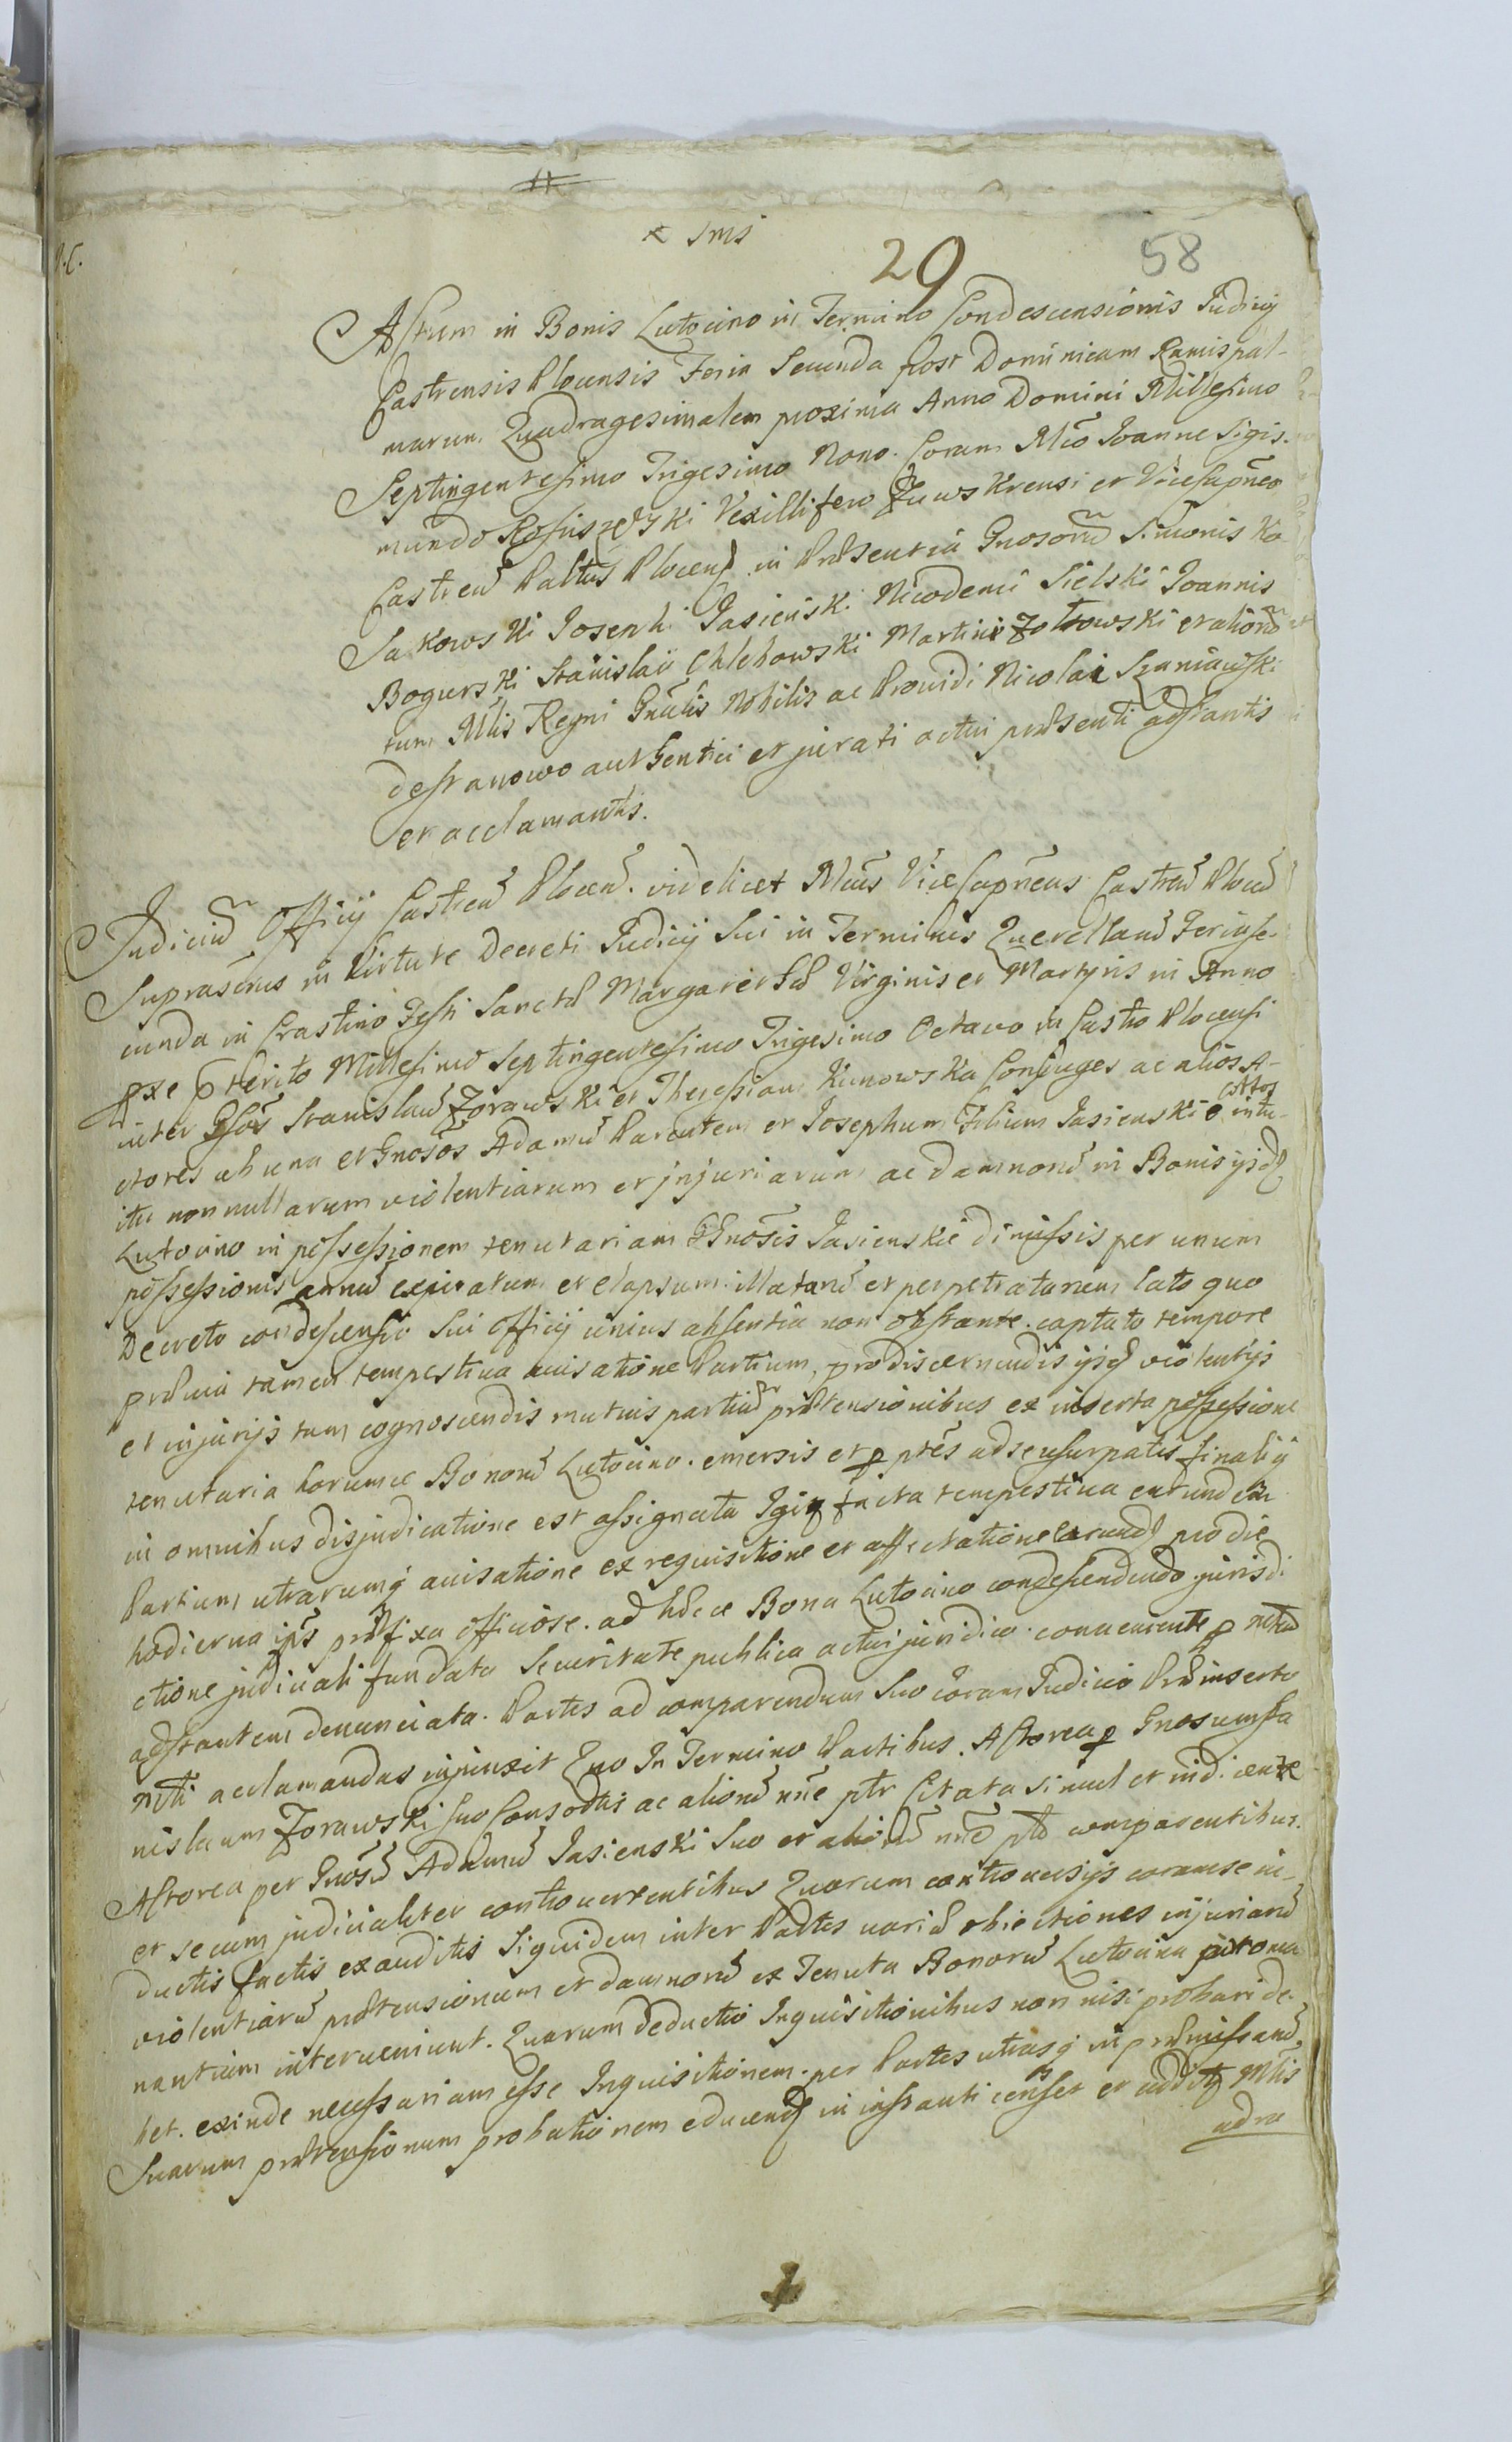 x Jmś
29 58
Actum in Bonis Lutocino in Termino Condescensionis Judicij
Castrensis Plocensis Feria Secunda post Dominicam Ramispal-
marum Quadragesimalem proxima Anno Domini Millesimo
Septingentesimo Trigesimo Nono. Coram Mco Joanne Sigis-
mundo Vexillifero Zawskrensi et Vicecapneo
Castren Paltus Plocens in Præsentia Gnosorum Simonis Ko-
Sakowski Josephi Jasienski Nicodemi Sielski Joannis
Bogurski Stanislai Chlehowski Martini Zołtowski et aliorum
tum Mlis Regni Gnalis Nobilis ac Prouidi Nicolai Szaniawski
destanowo authentici et jurati actui præsenti adstantis
et acclamantis.
Judicium Officij Castren Plocen. videlicet Mcus Vicecapneus Castren Plocen
Suprascrus in Virtute Decreti Judicij Sui in Terminis Querellarum Feriase-
cunda in Crastino Festi Sanctæ Margarethæ Virginis et Martyris in Anno
præterito Millesimo Septingentesimo Trigesimo Octavo in Castro Plocensi
inter Gsos Stanislaum Zorawski et Theresiam Kunowska Conjuges ac alios A-
ctores ab una et Gnosos Adamum Parentem et Josephum Filium Jasienskie Ctos intu-
itu non nullarum violentiarum et injuriarum ac damnorum in Bonis ijsdem
Lutocino in possessionem tenutariam GGnosis Jasienskie dimissis per unum
possessionis annum expiratum et elapsum illatarum et perpetratarum lato quo
Decreto condescensio Sui Officij unius absentia non obstante. captato tempore
præuia tamen tempestiua auisatione Partium, pro discernendis ijsdem violentijs
et injurijs tum cognoscendis mutuis partium prætensionibus ex inserta possessione
tenutaria horumce Bonorum Lutocino. emersis et per ptes ad se usurpatis finalią
in omnibus disjudicatione est assignata Igitur facta tempestiua earundem
Partium utrarumq auisatione ex requisitione et affectatione earundem pro die
hodierna ipis præfixa officiose. ad hæcce Bona Lutocino condescendendo jurisdi-
ctione judiciali fundata Securitate publica actui juridico. conuenente per mtrum
adstantem denunciata. Partes ad comparendum Suo coram Judicio Præinserto
mtli acclamandas injunxit Quo In Termino Partibus. Actorea per Gnosum Sta-
nislaum Zorawski Suo Consortis ac aliorum nne ptr Citata simul et indicente
Actorea per Gnosum Adamum Jasienski Suo et aliorum nne pto comparentibus.
et secum judicialiter controuertentibus Quorum controuersijs coram se in-
ductis factis exauditis Siquidem inter Partes uariæ obiectiones injuriarum
violentiarum prætensionum et damnorum ex Tenuta Bonorum Lutocina
nantium interueniunt. Quarum deductio Inquisitionibus non nisi probari de-
bet. exinde necessariam esse Inquisitionem. per Partes utrasq in præmissarum
Suarum prætensionum probationem educendas in instanti censet et Mlis
adre